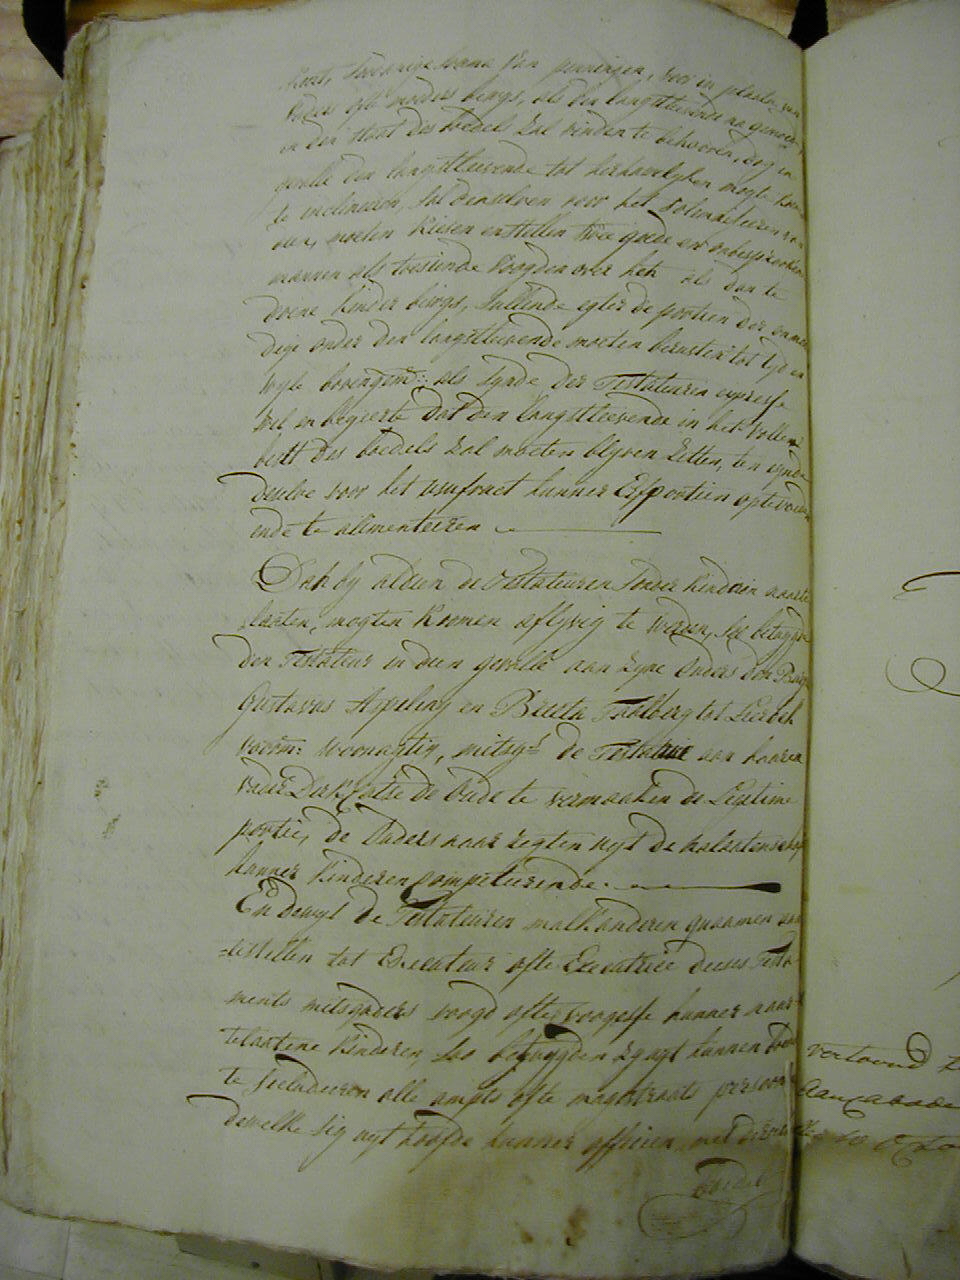 hart, soodanige somma van penningen, voor in plaatse van
Vaders ofte moeders bewys, als den langstleevende na gemoede
in den staat des boedels zal vinden te behooren, dog in
gevalle den langstleevende tot herhuwelyken mogte koomen
te inclineeren, sal denselven voor het solemniseeren van
dien, moeten kiesen en stellen twee goede en onbesprooken
mannen als toesiende voogden over het als dan te
doene kinder bewys, sullende egter de portien der onmon
dige onder den langstleevende moeten berusten tot tyd en
wyle bovengem: als synde der Testateuren expresse
wil en begeerte dat den langstleevende in het vollen
besit des boedels zal moeten blyven zitten, ten eynde
deselve voor het usufruct hunner Erfportien optevoeden
ende te alimenteeren
Dat by aldien de Testateuren sonder kinderen naarte
laaten, mogten koomen aflyvig te werden, soo betuygde
den Testateur in dien gevalle aan zyne Ouders den
Gustavus Aspeling en Beata Tahlberg tot
voorm: woonagtig, mitsgs de Testatrice aan haaren
vader Dirk de Oude te vermaaken de Legitime
portie, de Ouders naar regten uyt de nalaatenschap
hunner kinderen competeerende.
En dewyl de Testateuren malkanderen quaamen aan
testellen tot Executeur ofte Executrice deeses Testa
ments mitsgaders voogd ofte voogesse hunner naar
telaatene kinderen, soo betuygden zy uyt hunnen boedel
te secludeeren alle ampts ofte magistraats persoonen
dewelke sig uyt hoofde hunner officien, met dierge
boedel
vertoond